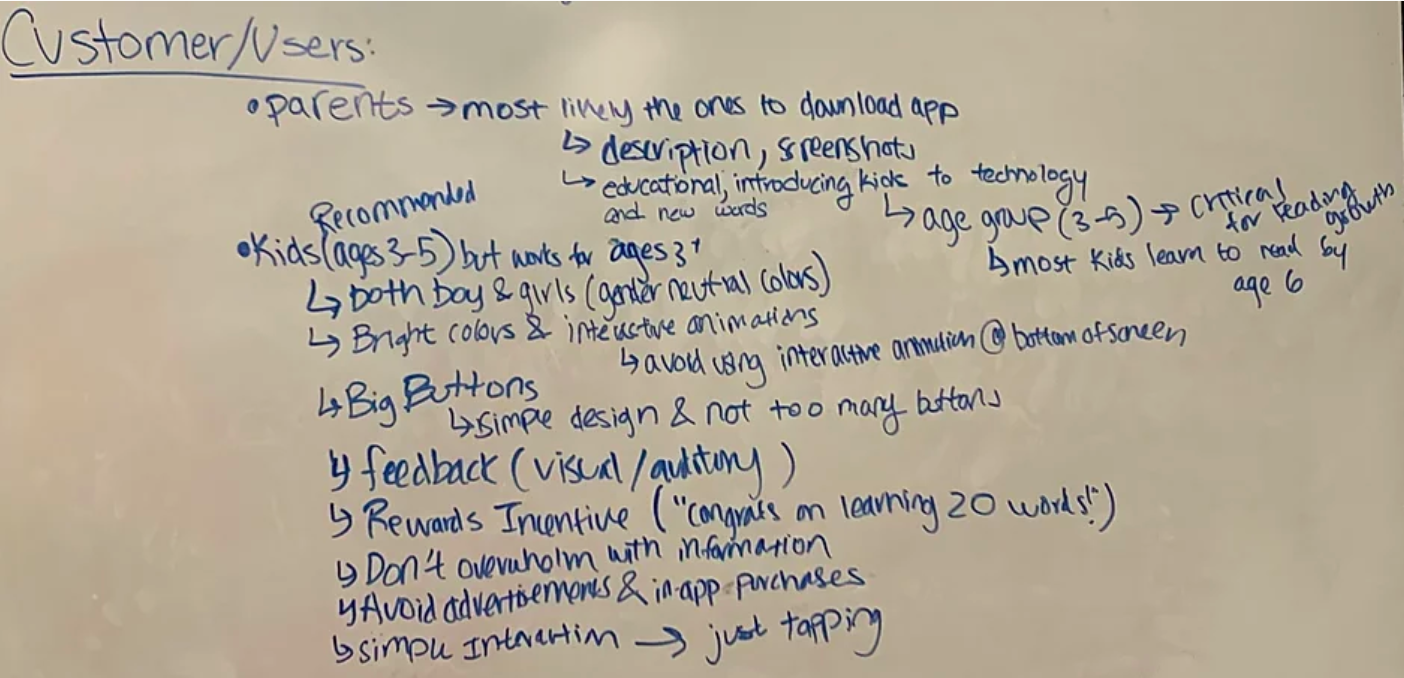 Customer/Users:
• parents → most likely the ones to download app
↳ description, screenshots
↳ educational, introducing kids to technology
and new words
↳ age group (3-5) → critical
for reading
growth
↳ most kids learn to read by
age 6
Recommended
• Kids (ages 3-5) but works for ages 3+
↳ both boy & girls (gender neutral colors)
↳ Bright colors & interactive animations
↳ avoid using interactive animation @ bottom of screen
↳ Big Buttons
↳ simple design & not too many buttons
↳ feedback (visual/auditory)
↳ Rewards Incentive ("congrats on learning 20 words!")
↳ Don't overwhelm with information
↳ Avoid advertisements & in-app purchases
↳ simple Interaction → just tapping